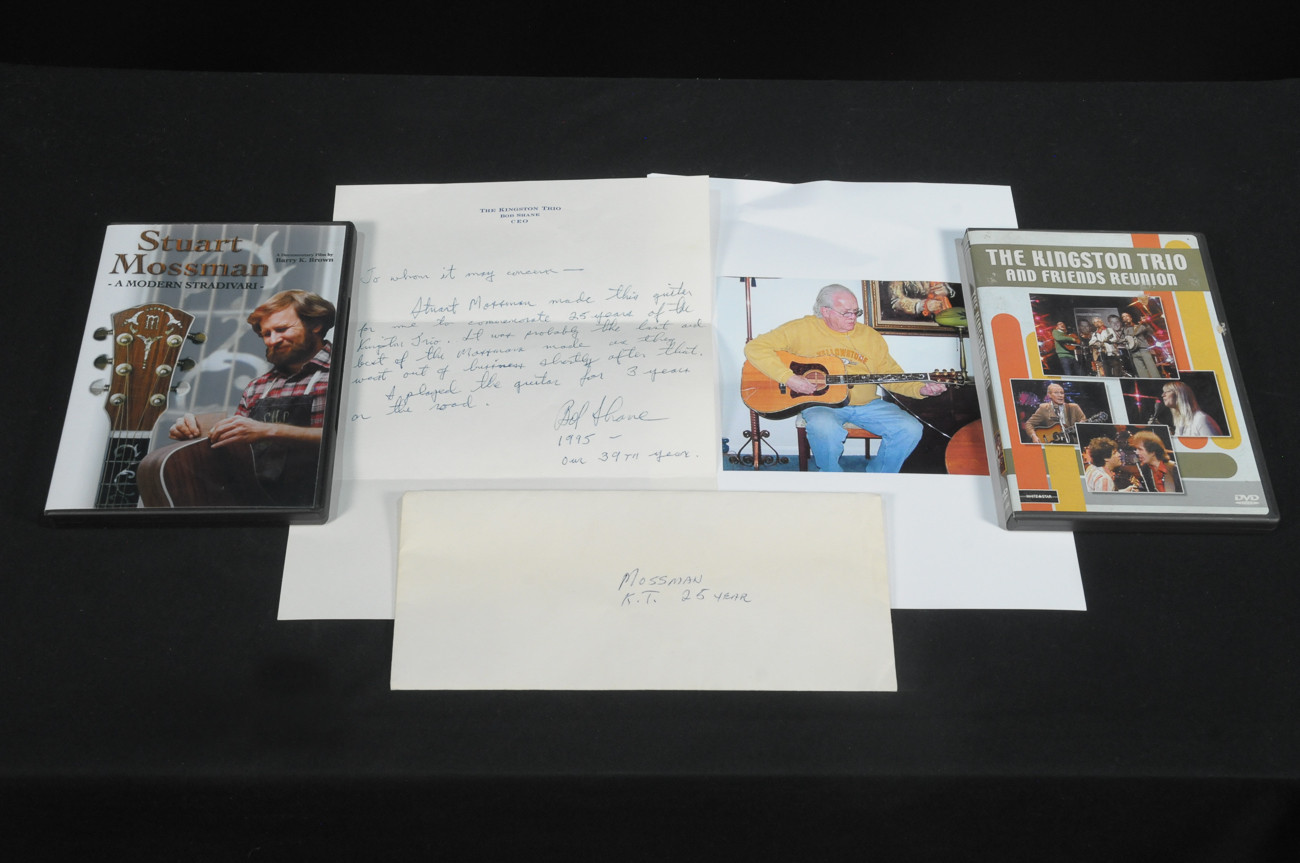 Stuart
Mossman
- A MODERN STRADIVARI -
A Documentary Film by
Barry K. Brown
M
THE KINGSTON TRIO
BOB SHANE
CEO
To whom it may concern —
Stuart Mossman made this guitar
for me to commemorate 25 years of the
Kingston Trio. It was probably the last and
best of the Mossmans made as they
went out of business shortly after that.
I played the guitar for 3 years
on the road.
Bob Shane
1995 —
our 39TH year.
YELLOWSTONE
THE KINGSTON TRIO
AND FRIENDS REUNION
WHITE STAR
DVD
MOSSMAN
K.T. 25 YEAR